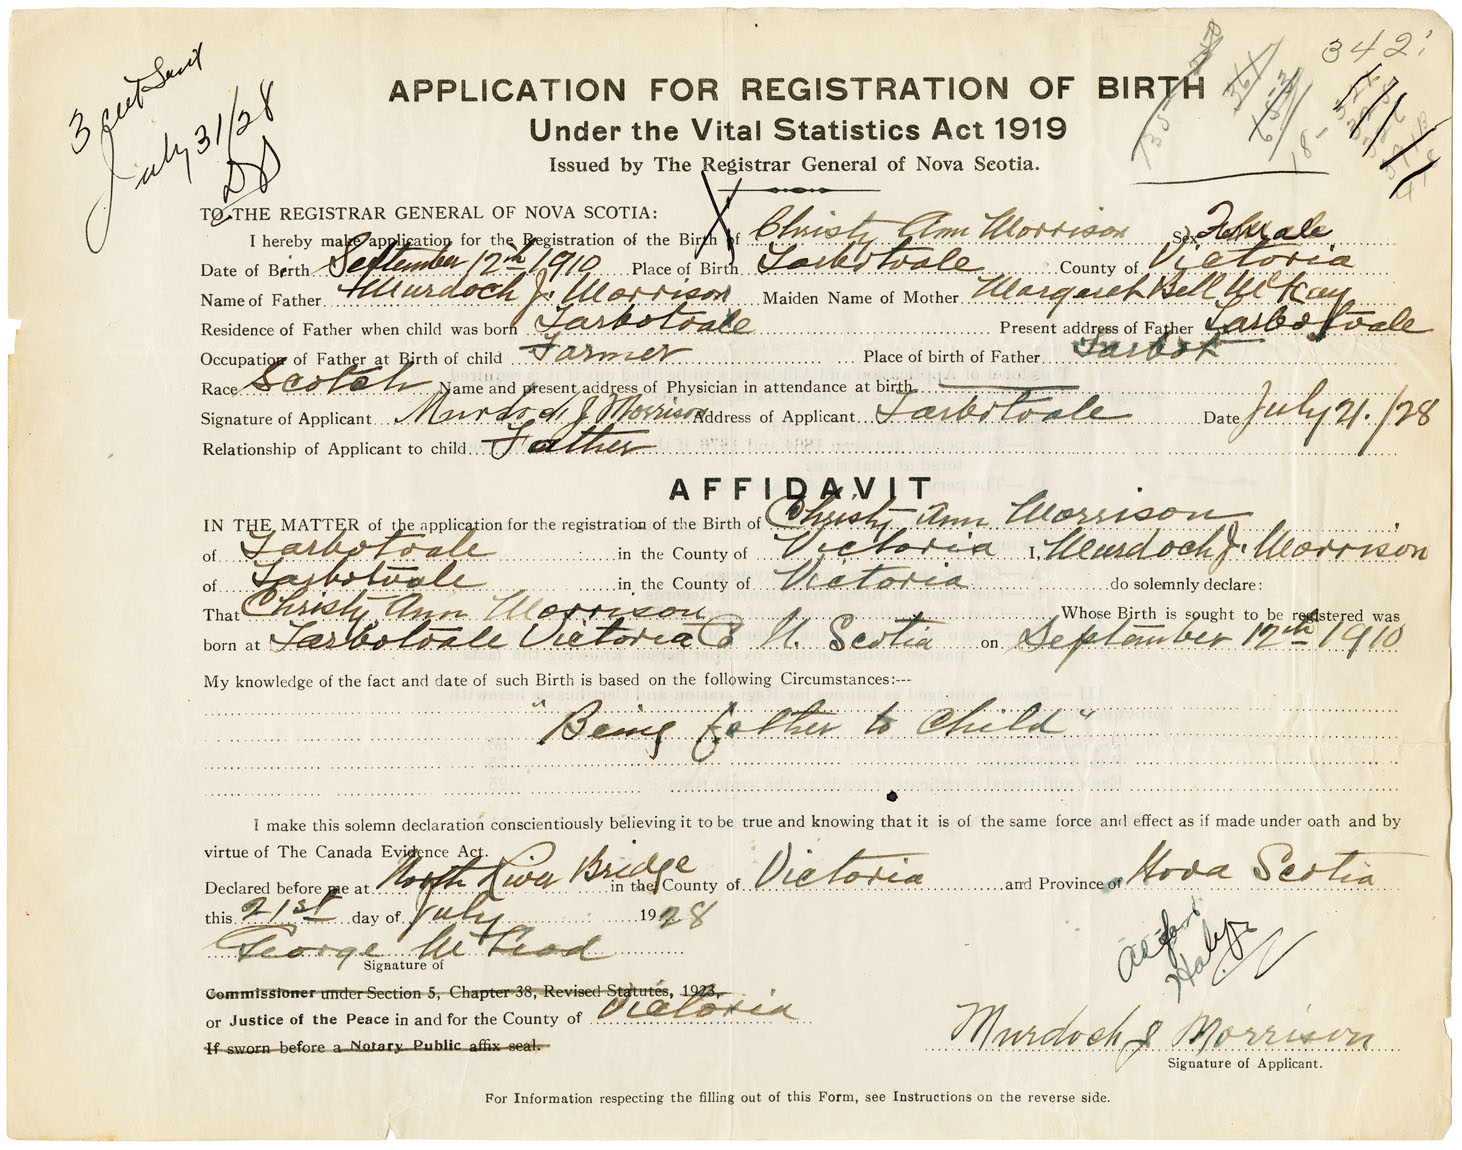 3 cert Sent
July 31/28
342
135
18-
APPLICATION FOR REGISTRATION OF BIRTH
Under the Vital Statistics Act 1919
Issued by The Registrar General of Nova Scotia.
TO THE REGISTRAR GENERAL OF NOVA SCOTIA:
I hereby make application for the Registration of the Birth of Christy Ann Morrison Sex Female
Date of Birth September 12th 1910 Place of Birth Tarbotvale County of Victoria
Name of Father Murdoch J. Morrison Maiden Name of Mother Margaret Bell McKay
Residence of Father when child was born Tarbotvale Present address of Father Tarbotvale
Occupation of Father at Birth of child Farmer Place of birth of Father Tarbot
Race Scotch Name and present address of Physician in attendance at birth
Signature of Applicant Murdoch J Morrison Address of Applicant Tarbotvale Date July 21./28
Relationship of Applicant to child Father
AFFIDAVIT
IN THE MATTER of the application for the registration of the Birth of Christy Ann Morrison
of Tarbotvale in the County of Victoria I, Murdoch J. Morrison
of Tarbotvale in the County of Victoria do solemnly declare:
That Christy Ann Morrison Whose Birth is sought to be registered was
born at Tarbotvale Victoria Co N. Scotia on September 12th 1910
My knowledge of the fact and date of such Birth is based on the following Circumstances:---
"Being father to Child"
I make this solemn declaration conscientiously believing it to be true and knowing that it is of the same force and effect as if made under oath and by
virtue of The Canada Evidence Act.
Declared before me at North River Bridge in the County of Victoria and Province of Nova Scotia
this 21st day of July 1928
George McLeod
Signature of
Commissioner under Section 5, Chapter 38, Revised Statutes, 1923,
or Justice of the Peace in and for the County of Victoria
If sworn before a Notary Public affix seal.
Murdoch J Morrison
Signature of Applicant.
For Information respecting the filling out of this Form, see Instructions on the reverse side.